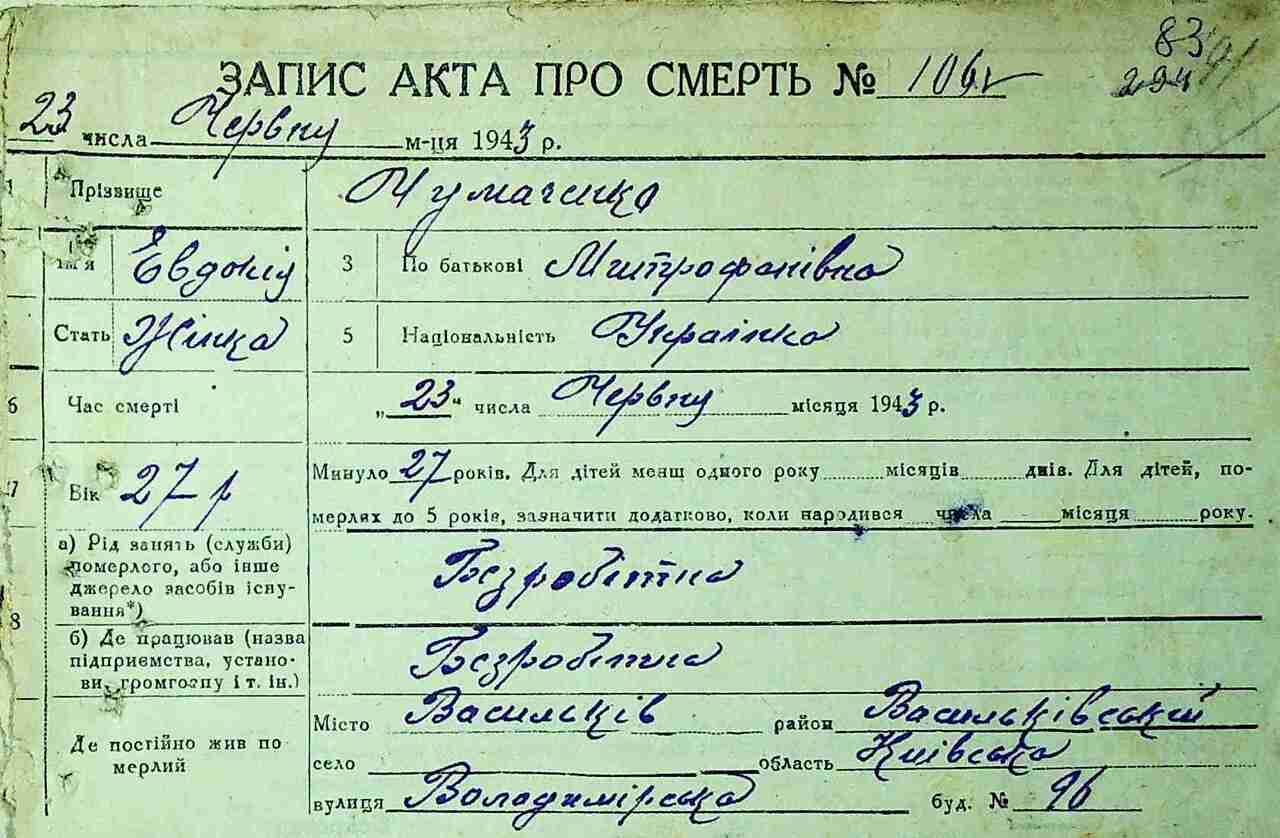 83
294 91
ЗАПИС АКТА ПРО СМЕРТЬ № 106
23 числа Червну м-ця 1943 р.
1 Прізвище Чумаченко
Ім'я Евдокія 3 По батькові Митрофанівна
Стать Жінка 5 Національність Українка
6 Час смерті „23“ числа Червну місяця 1943 р.
7 Вік 27 р Минуло 27 років. Для дітей менш одного року місяців днів. Для дітей, по-
мерлих до 5 років, зазначити додатково, коли народився числа місяця року.
8 а) Рід занять (служби)
померлого, або інше
джерело засобів існу-
вання*) Безробітна
б) Де працював (назва
підприємства, устано-
ви, громголпу і т. ін.) Безробітна
Де постійно жив по
мерлий
Місто Васильків район Васильківський
село область Київська
вулиця Володимірська буд. № 96